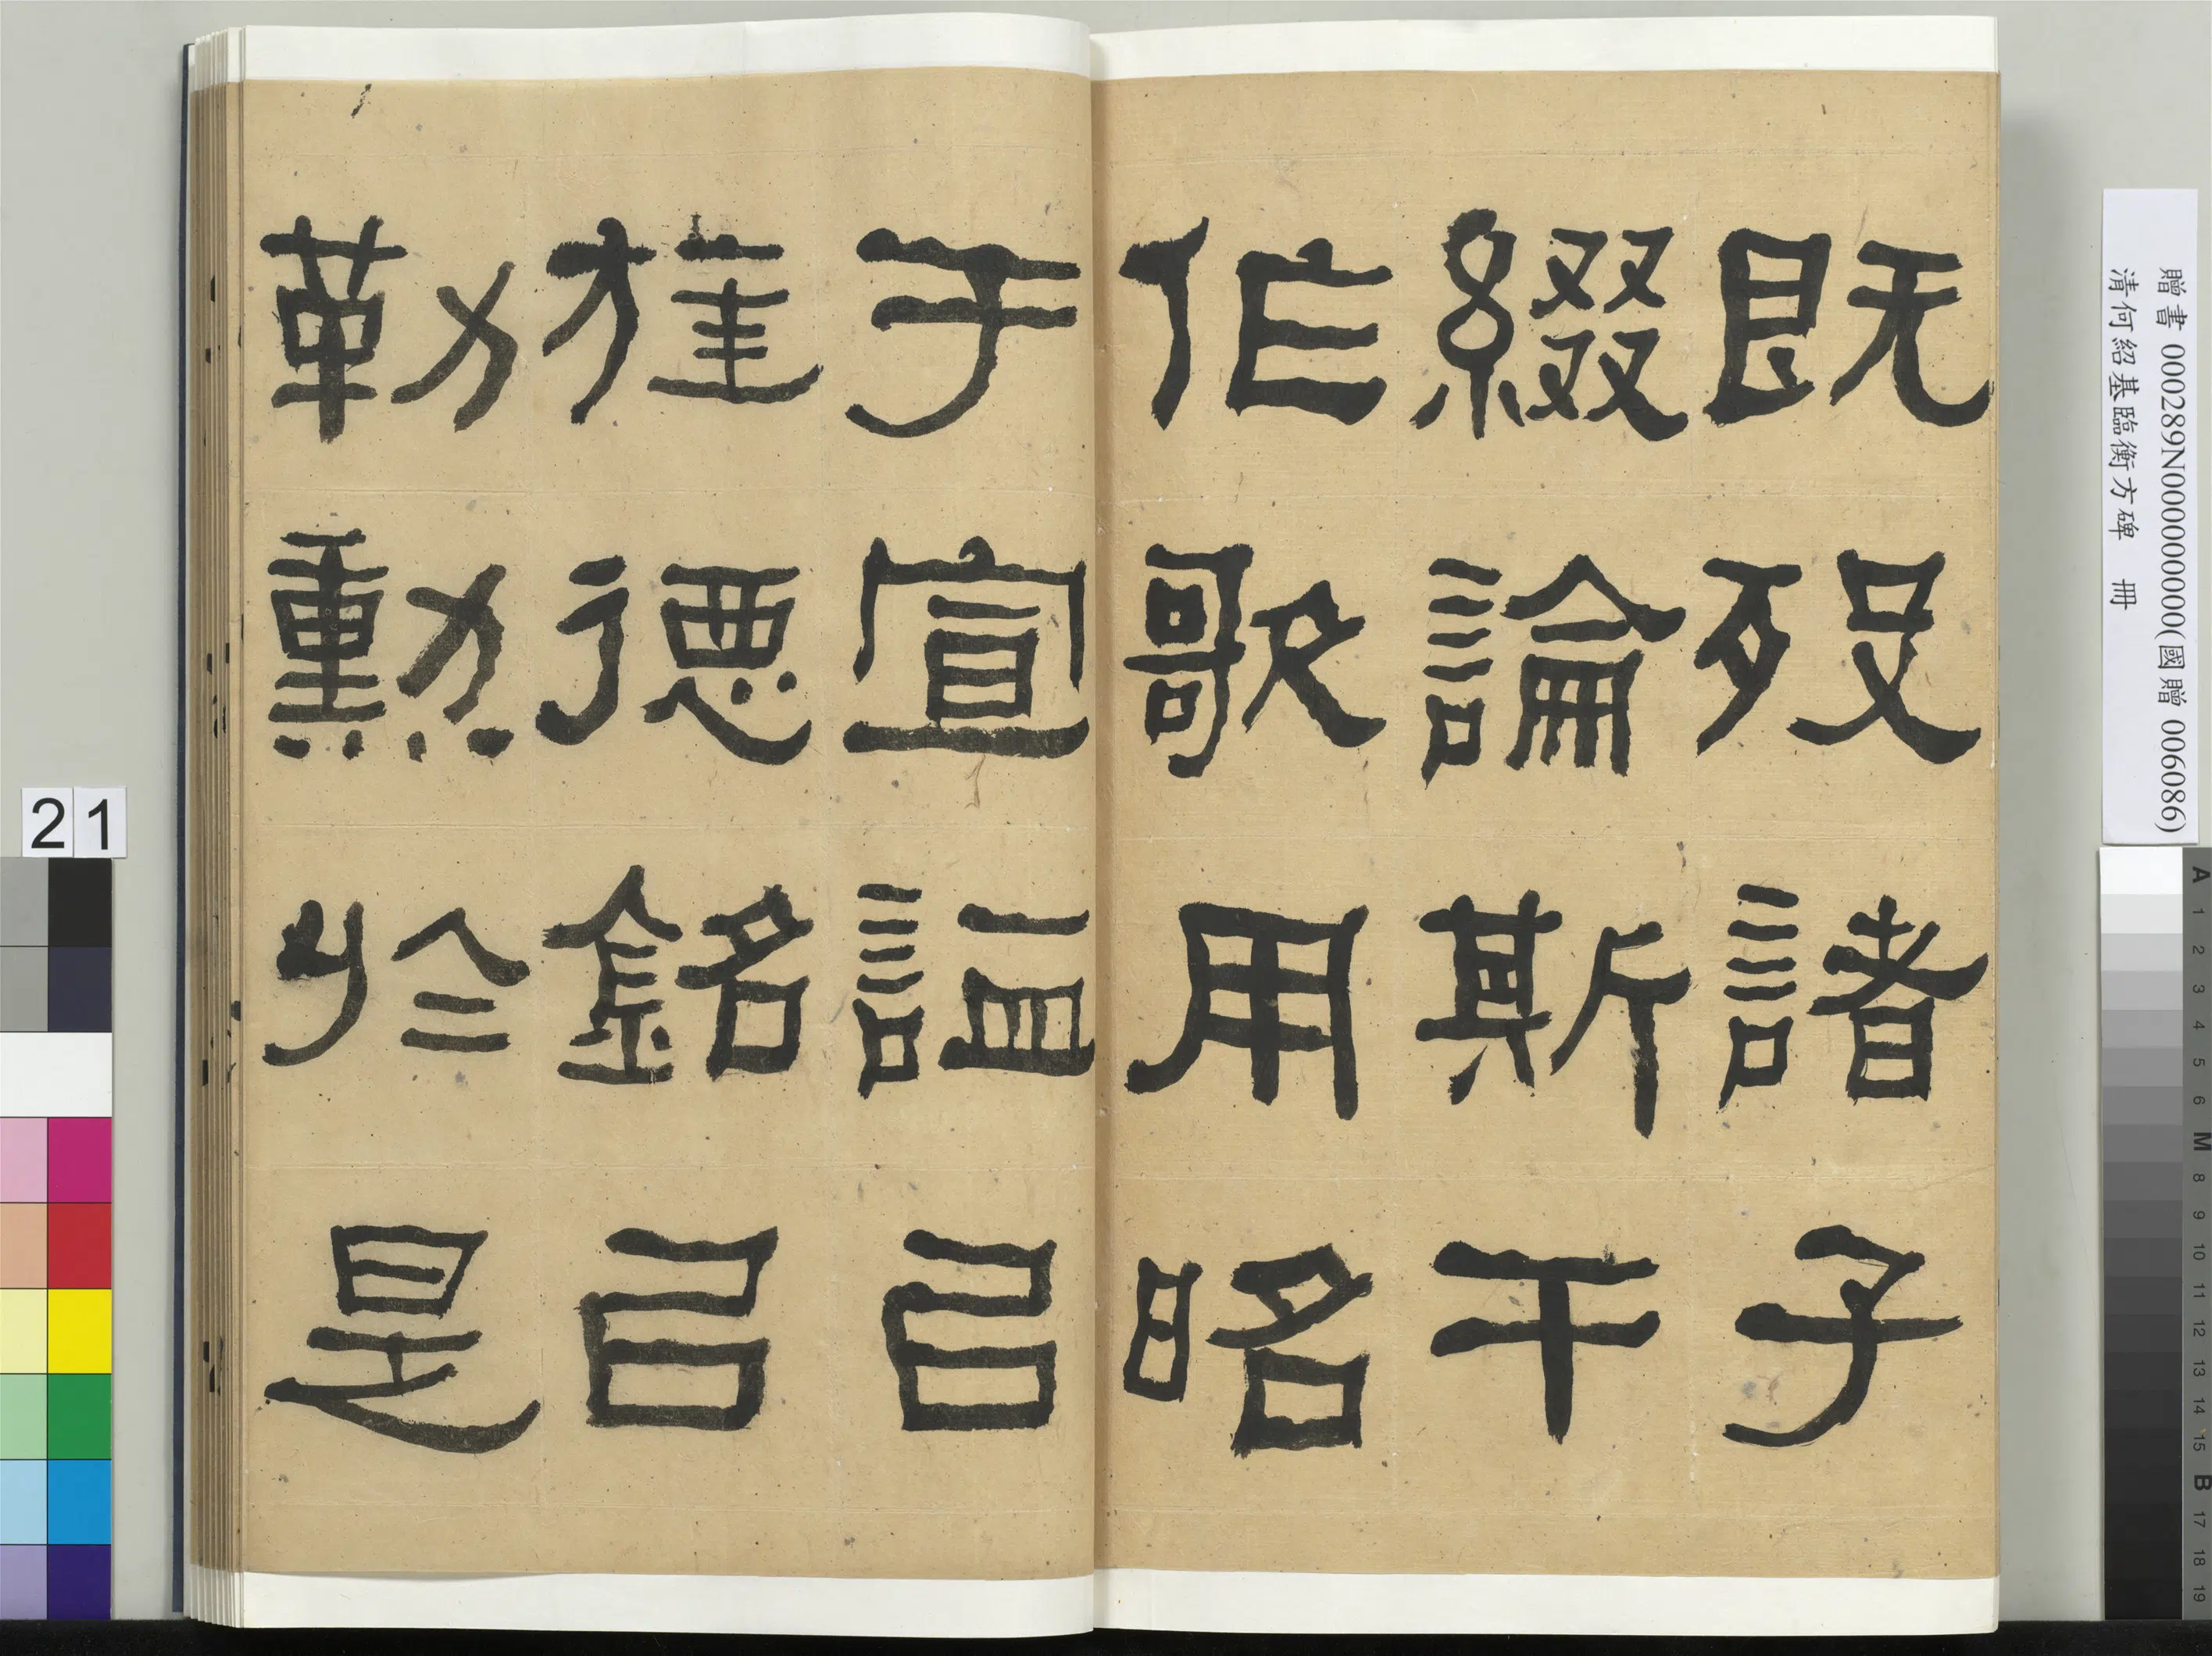 既歿諸子
綴論斯干
作歌用昭
于宣謚㠯
旌德銘㠯
勒勳於是
贈書 000289N000000000(國贈 006086)
清何紹基臨衡方碑 冊
21
A 1 2 3 4 5 6 M 8 9 10 11 12 13 14 15 B 17 18 19